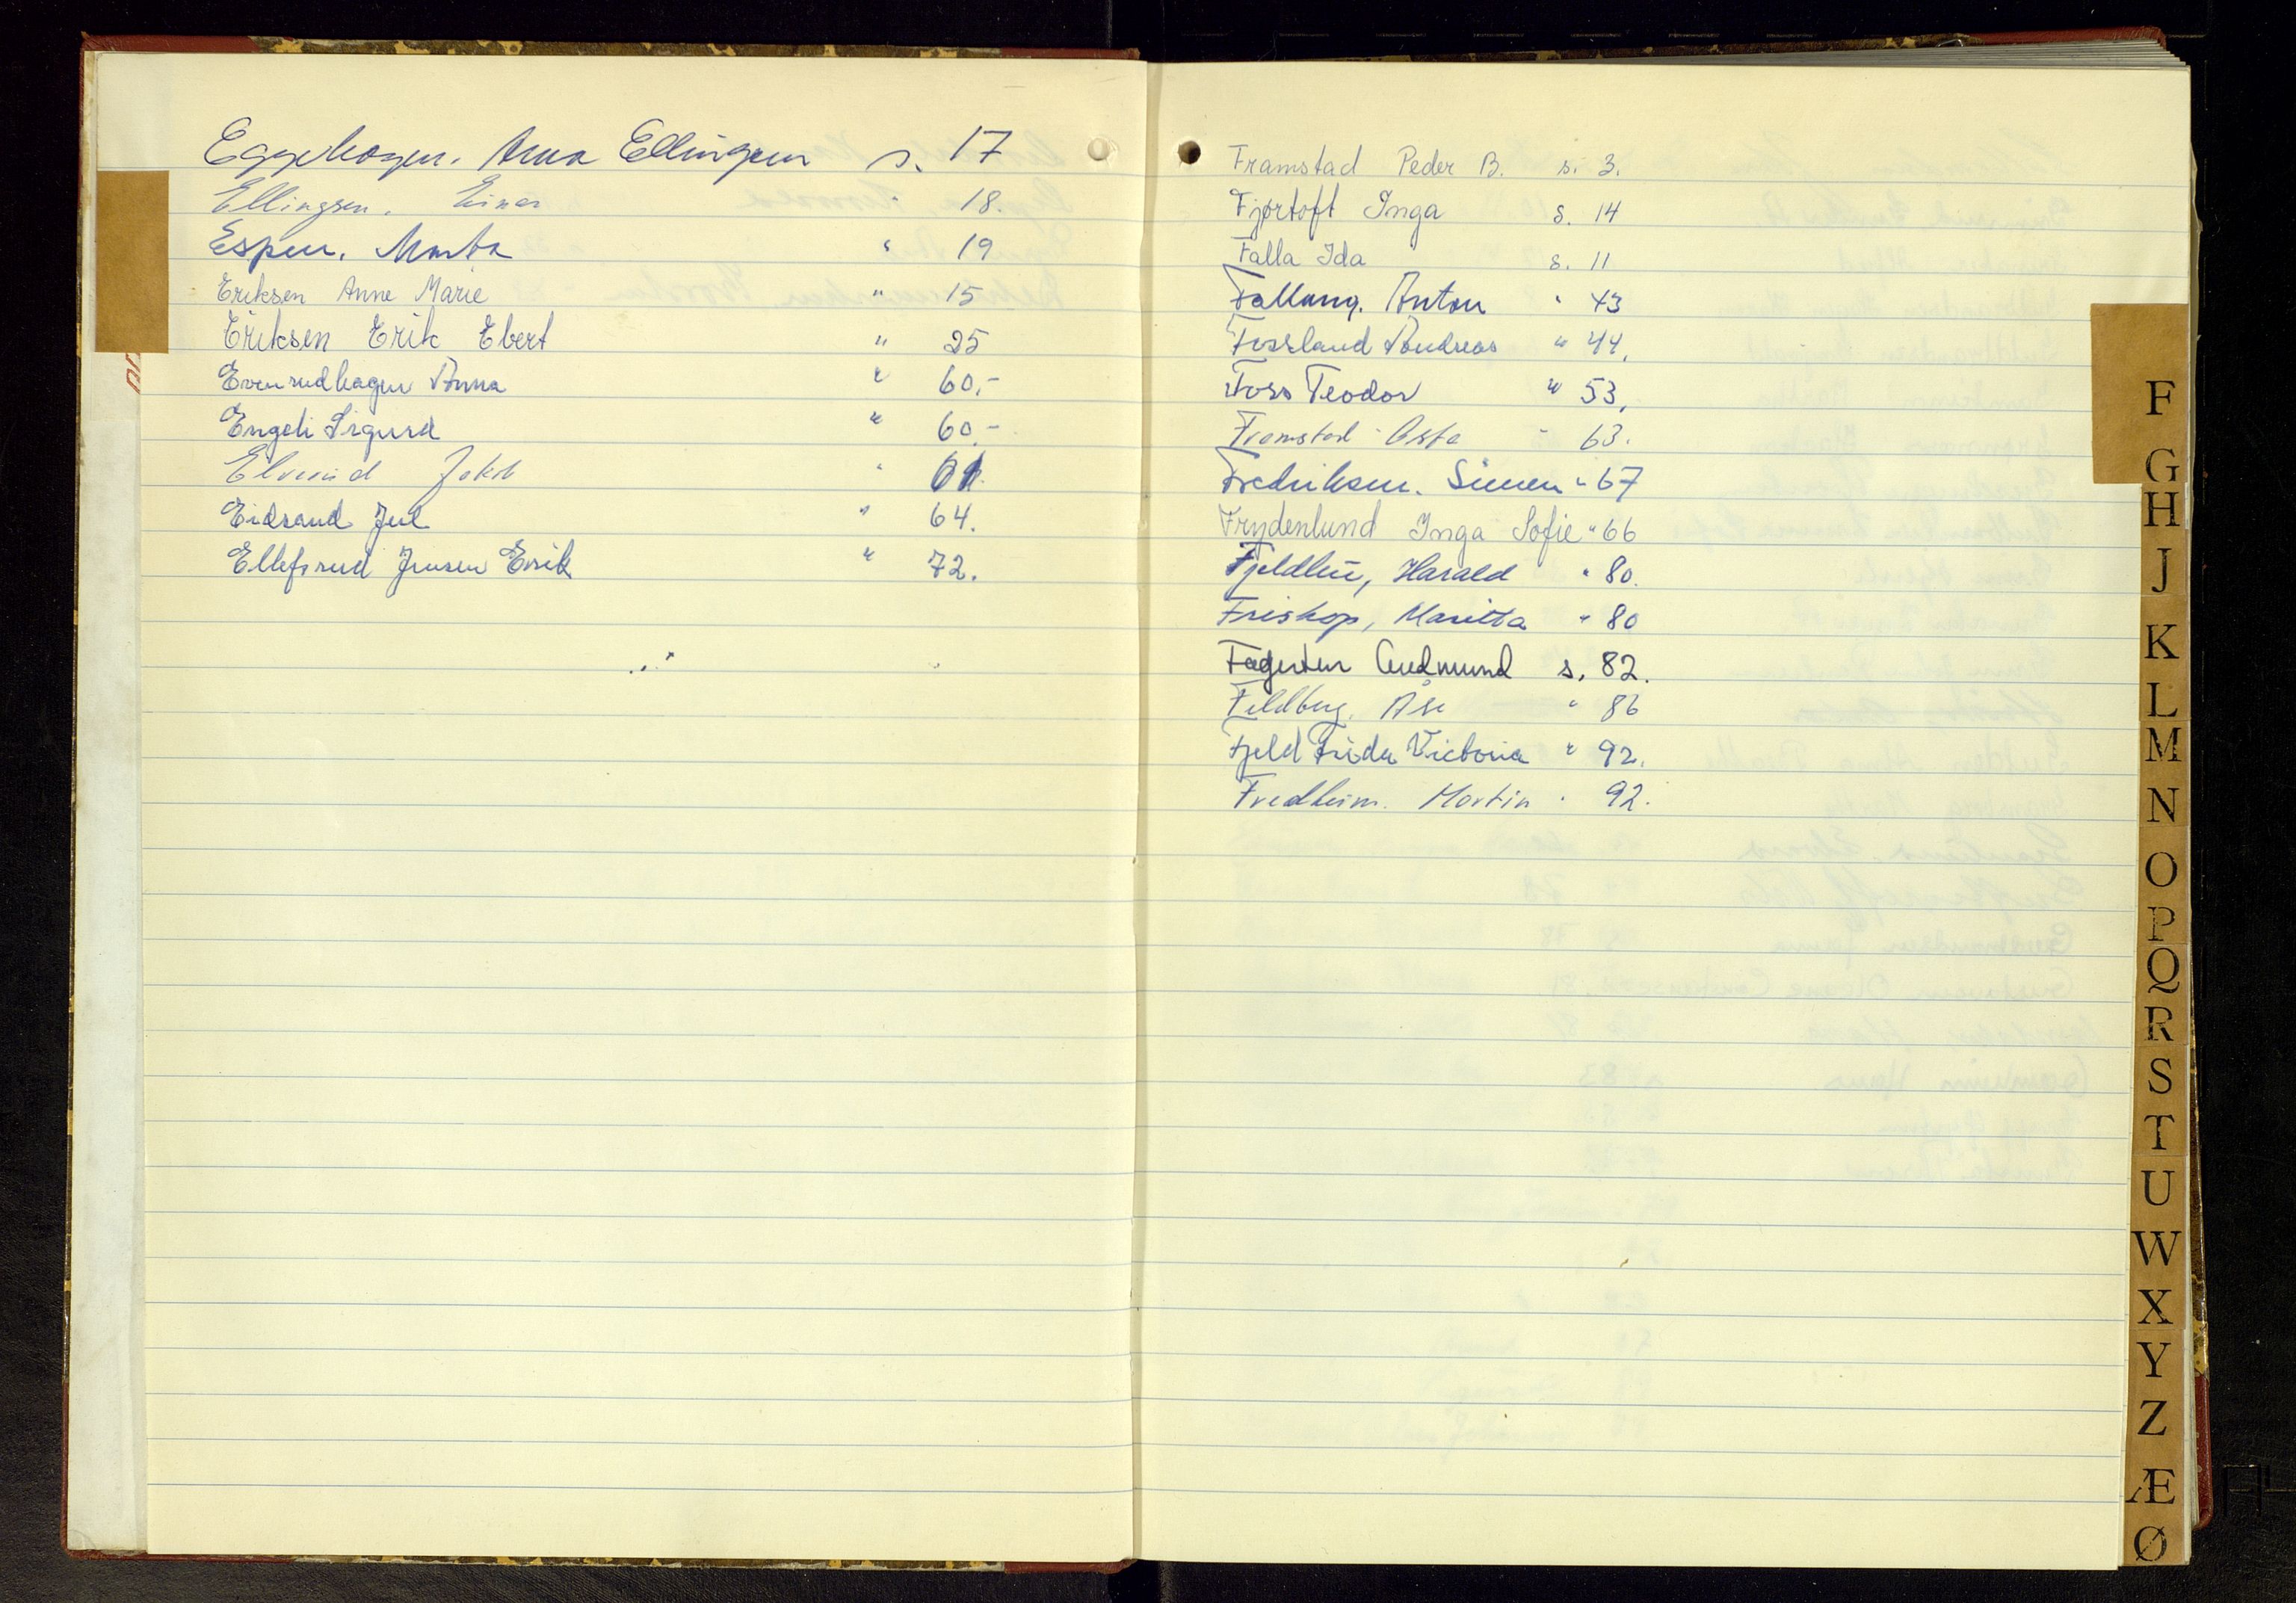 Eggehagen. Anna Ellingsen s. 17
Ellingsen. Einar " 18.
Espen. Marta " 19
Eriksen Anne Marie " 15
Eriksen Erik Ebert " 25
Evenrudhagen Anna " 60.-
Engeli Sigurd " 60.-
Elvund Jakob "
Eidsand Jul " 64.
Ellefsrud Jensen Erik " 72.
Framstad Peder B. s. 3.
Fjørtoft Inga s. 14
Falla Ida s. 11
Fallang. Anton " 43
Fossland Andreas " 44.
Foss Teodor " 53.
Framstad Asta " 63.
Fredriksen. Simen " 67
Frydenlund Inga Sofie " 66
Fjeldlie, Harald " 80.
Friskop, Maritta " 80
Fagerlien Gudmund s. 82.
Feldberg. Åse " 86
Fjeld Frida Victoria " 92.
Fredheim. Martin " 92.
F
G
H
J
K
L
M
N
O
P
Q
R
S
T
U
W
X
Y
Z
Æ
Ø